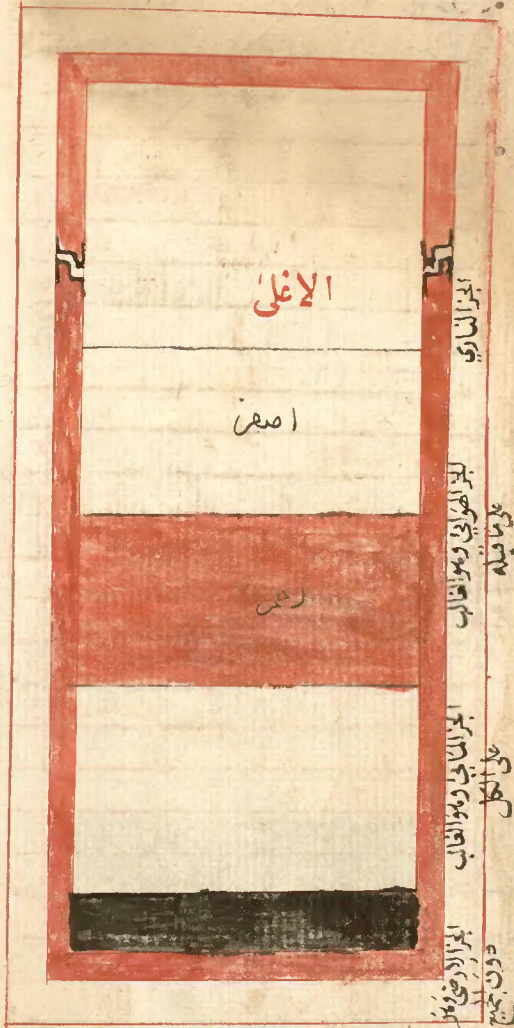 الاعلى
اصفر
احمر
الجز الناري
الجز الهوايي وهو الغالب
على ما قبله
الجز المايي وهو الغالب
على الكل
الجز الارضي وهو
دون جميع